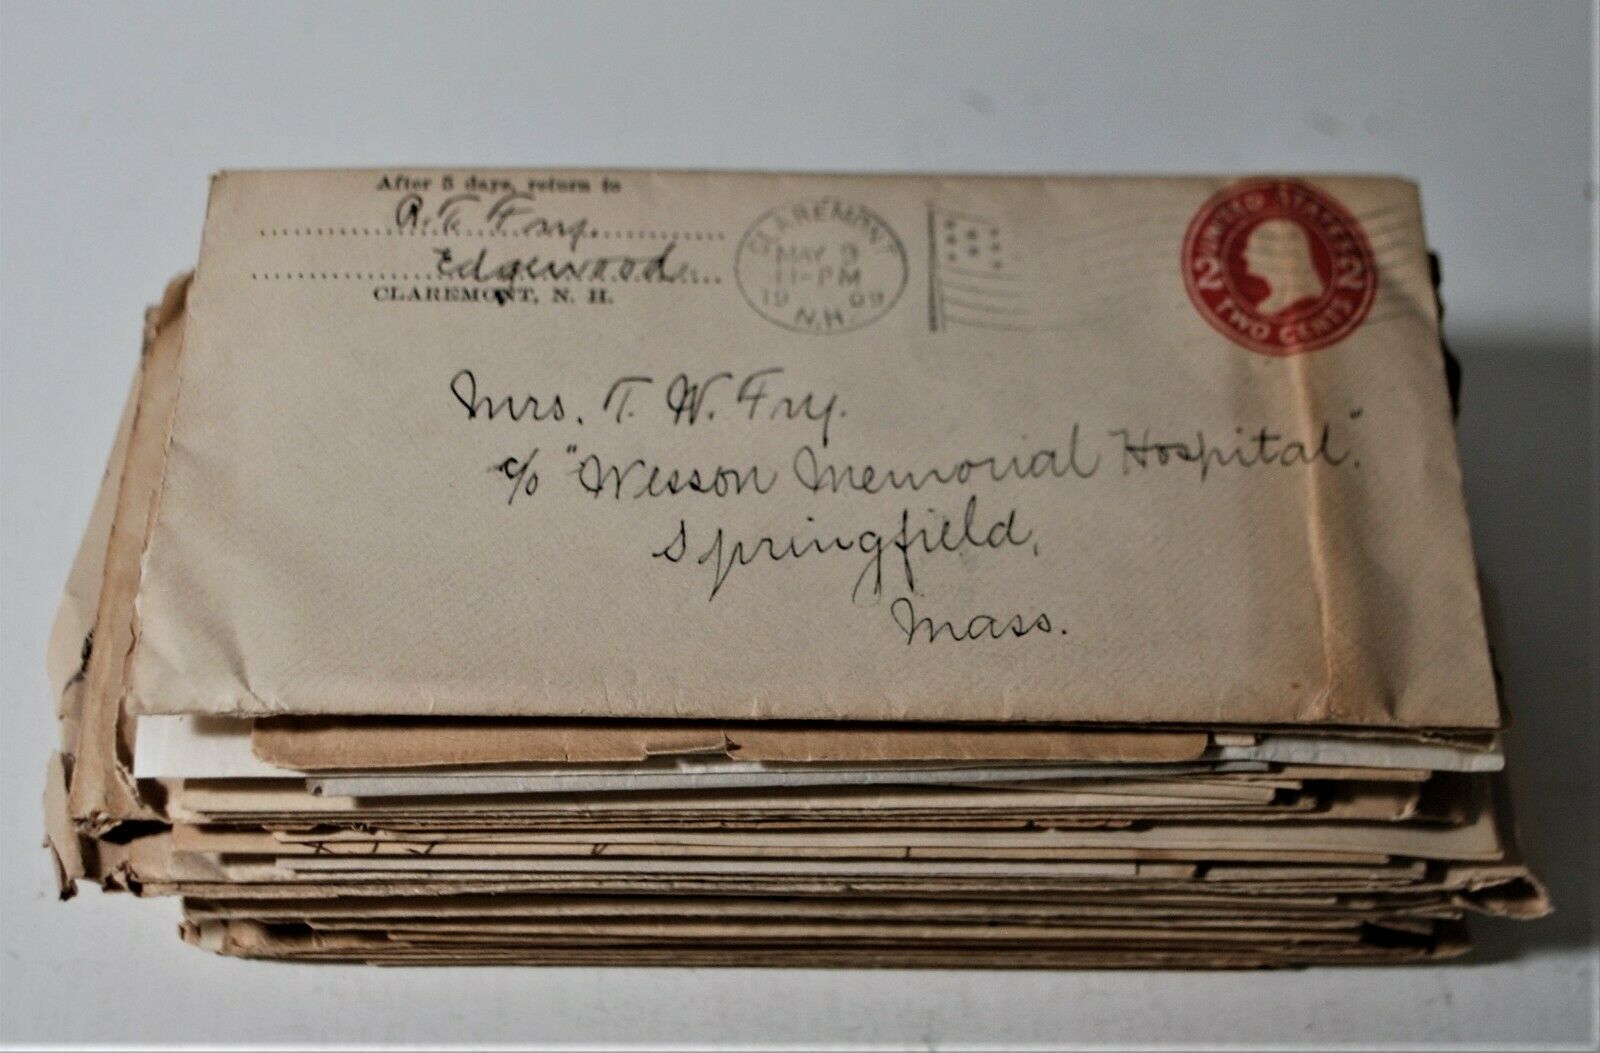 After 5 days, return to
R. T. Fry.
Edgewood
CLAREMONT, N. H.
CLAREMONT
MAY 9
11-PM
1909
N.H.
UNITED STATES
2 2
TWO CENTS
Mrs. T. W. Fry.
c/o "Wesson Memorial Hospital".
Springfield,
Mass.